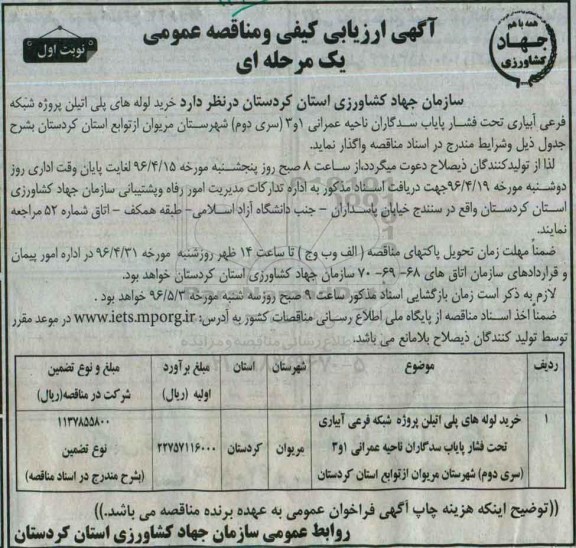 همه با هم
جهاد
کشاورزی
آگهی ارزیابی کیفی ومناقصه عمومی
یک مرحله ای
نوبت اول
سازمان جهاد کشاورزی استان کردستان درنظر دارد خرید لوله های پلی اتیلن پروژه شبکه
فرعی آبیاری تحت فشار پایاب سدگاران ناحیه عمرانی ۱و۳ (سری دوم) شهرستان مریوان ازتوابع استان کردستان بشرح
جدول ذیل وشرایط مندرج در اسناد مناقصه واگذار نماید.
لذا از تولیدکنندگان ذیصلاح دعوت میگردد،از ساعت ۸ صبح روز پنجشنبه مورخه ۹۶/۴/۱۵ لغایت پایان وقت اداری روز
دوشنبه مورخه ۹۶/۴/۱۹جهت دریافت اسناد مذکور به اداره تدارکات مدیریت امور رفاه وپشتیبانی سازمان جهاد کشاورزی
استان کردستان واقع در سنندج خیابان پاسداران - جنب دانشگاه آزاد اسلامی- طبقه همکف - اتاق شماره ۵۲ مراجعه
نمایند.
ضمناً مهلت زمان تحویل پاکتهای مناقصه ( الف وب وج ) تا ساعت ۱۴ ظهر روزشنبه مورخه ۹۶/۴/۳۱ در اداره امور پیمان
و قراردادهای سازمان اتاق های ۶۸- ۶۹- ۷۰ سازمان جهاد کشاورزی استان کردستان خواهد بود.
لازم به ذکر است زمان بازگشایی اسناد مذکور ساعت ۹ صبح روزسه شنبه مورخه ۹۶/۵/۳ خواهد بود .
ضمنا اخذ اسناد مناقصه از پایگاه ملی اطلاع رسانی مناقصات کشور به آدرس: www.iets.mporg.ir در موعد مقرر
توسط تولید کنندگان ذیصلاح بلامانع می باشد.
ردیف موضوع شهرستان استان مبلغ برآورد اولیه (ریال) مبلغ و نوع تضمین شرکت در مناقصه(ریال)
۱ خرید لوله های پلی اتیلن پروژه شبکه فرعی آبیاری
تحت فشار پایاب سدگاران ناحیه عمرانی ۱و۳
(سری دوم) شهرستان مریوان ازتوابع استان کردستان
مریوان کردستان ۲۲۷۵۷۱۱۶۰۰۰
۱۱۳۷۸۵۵۸۰۰
نوع تضمین
(بشرح مندرج در اسناد مناقصه)
((توضیح اینکه هزینه چاپ آگهی فراخوان عمومی به عهده برنده مناقصه می باشد.))
روابط عمومی سازمان جهاد کشاورزی استان کردستان